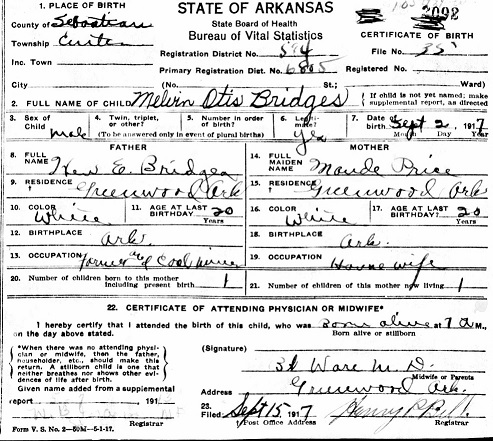 1. PLACE OF BIRTH
STATE OF ARKANSAS
2092
County of Sebastian
State Board of Health
Bureau of Vital Statistics
CERTIFICATE OF BIRTH
Township
Registration District No. 594
File No. 35
Inc. Town
Primary Registration Dist. No. 6805
Registered No.
City (No. St.; Ward)
2. FULL NAME OF CHILD Melvin Otis Bridges
If child is not yet named; make supplemental report, as directed
3. Sex of Child Male
4. Twin, triplet, or other?
5. Number in order of birth?
(To be answered only in event of plural births)
6. Legitimate? Yes
7. Date of birth Sept 2, 1917
Month Day Year
FATHER
MOTHER
8. FULL NAME E. Bridges
14. FULL MAIDEN NAME Maude Price
9. RESIDENCE Greenwood Ark
15. RESIDENCE Greenwood Ark
10. COLOR White
11. AGE AT LAST BIRTHDAY 20 Years
16. COLOR White
17. AGE AT LAST BIRTHDAY? 20 Years
12. BIRTHPLACE Ark.
18. BIRTHPLACE Ark.
13. OCCUPATION Coal miner
19. OCCUPATION House wife
20. Number of children born to this mother including present birth 1
21. Number of children of this mother now living 1
22. CERTIFICATE OF ATTENDING PHYSICIAN OR MIDWIFE*
I hereby certify that I attended the birth of this child, who was Born alive at 7 A M.,
on the day above stated.
Born alive or stillborn
*When there was no attending physician or midwife, then the father, householder, etc., should make this return. A stillborn child is one that neither breathes nor shows other evidences of life after birth.
(Signature) Ware M. D.
Midwife or Parents
Address Greenwood Ark.
Given name added from a supplemental
report 191
23. Filed Sept 15, 1917
Registrar
Post Office Address
Registrar
Form V. S. No. 2—50M—5-1-17.